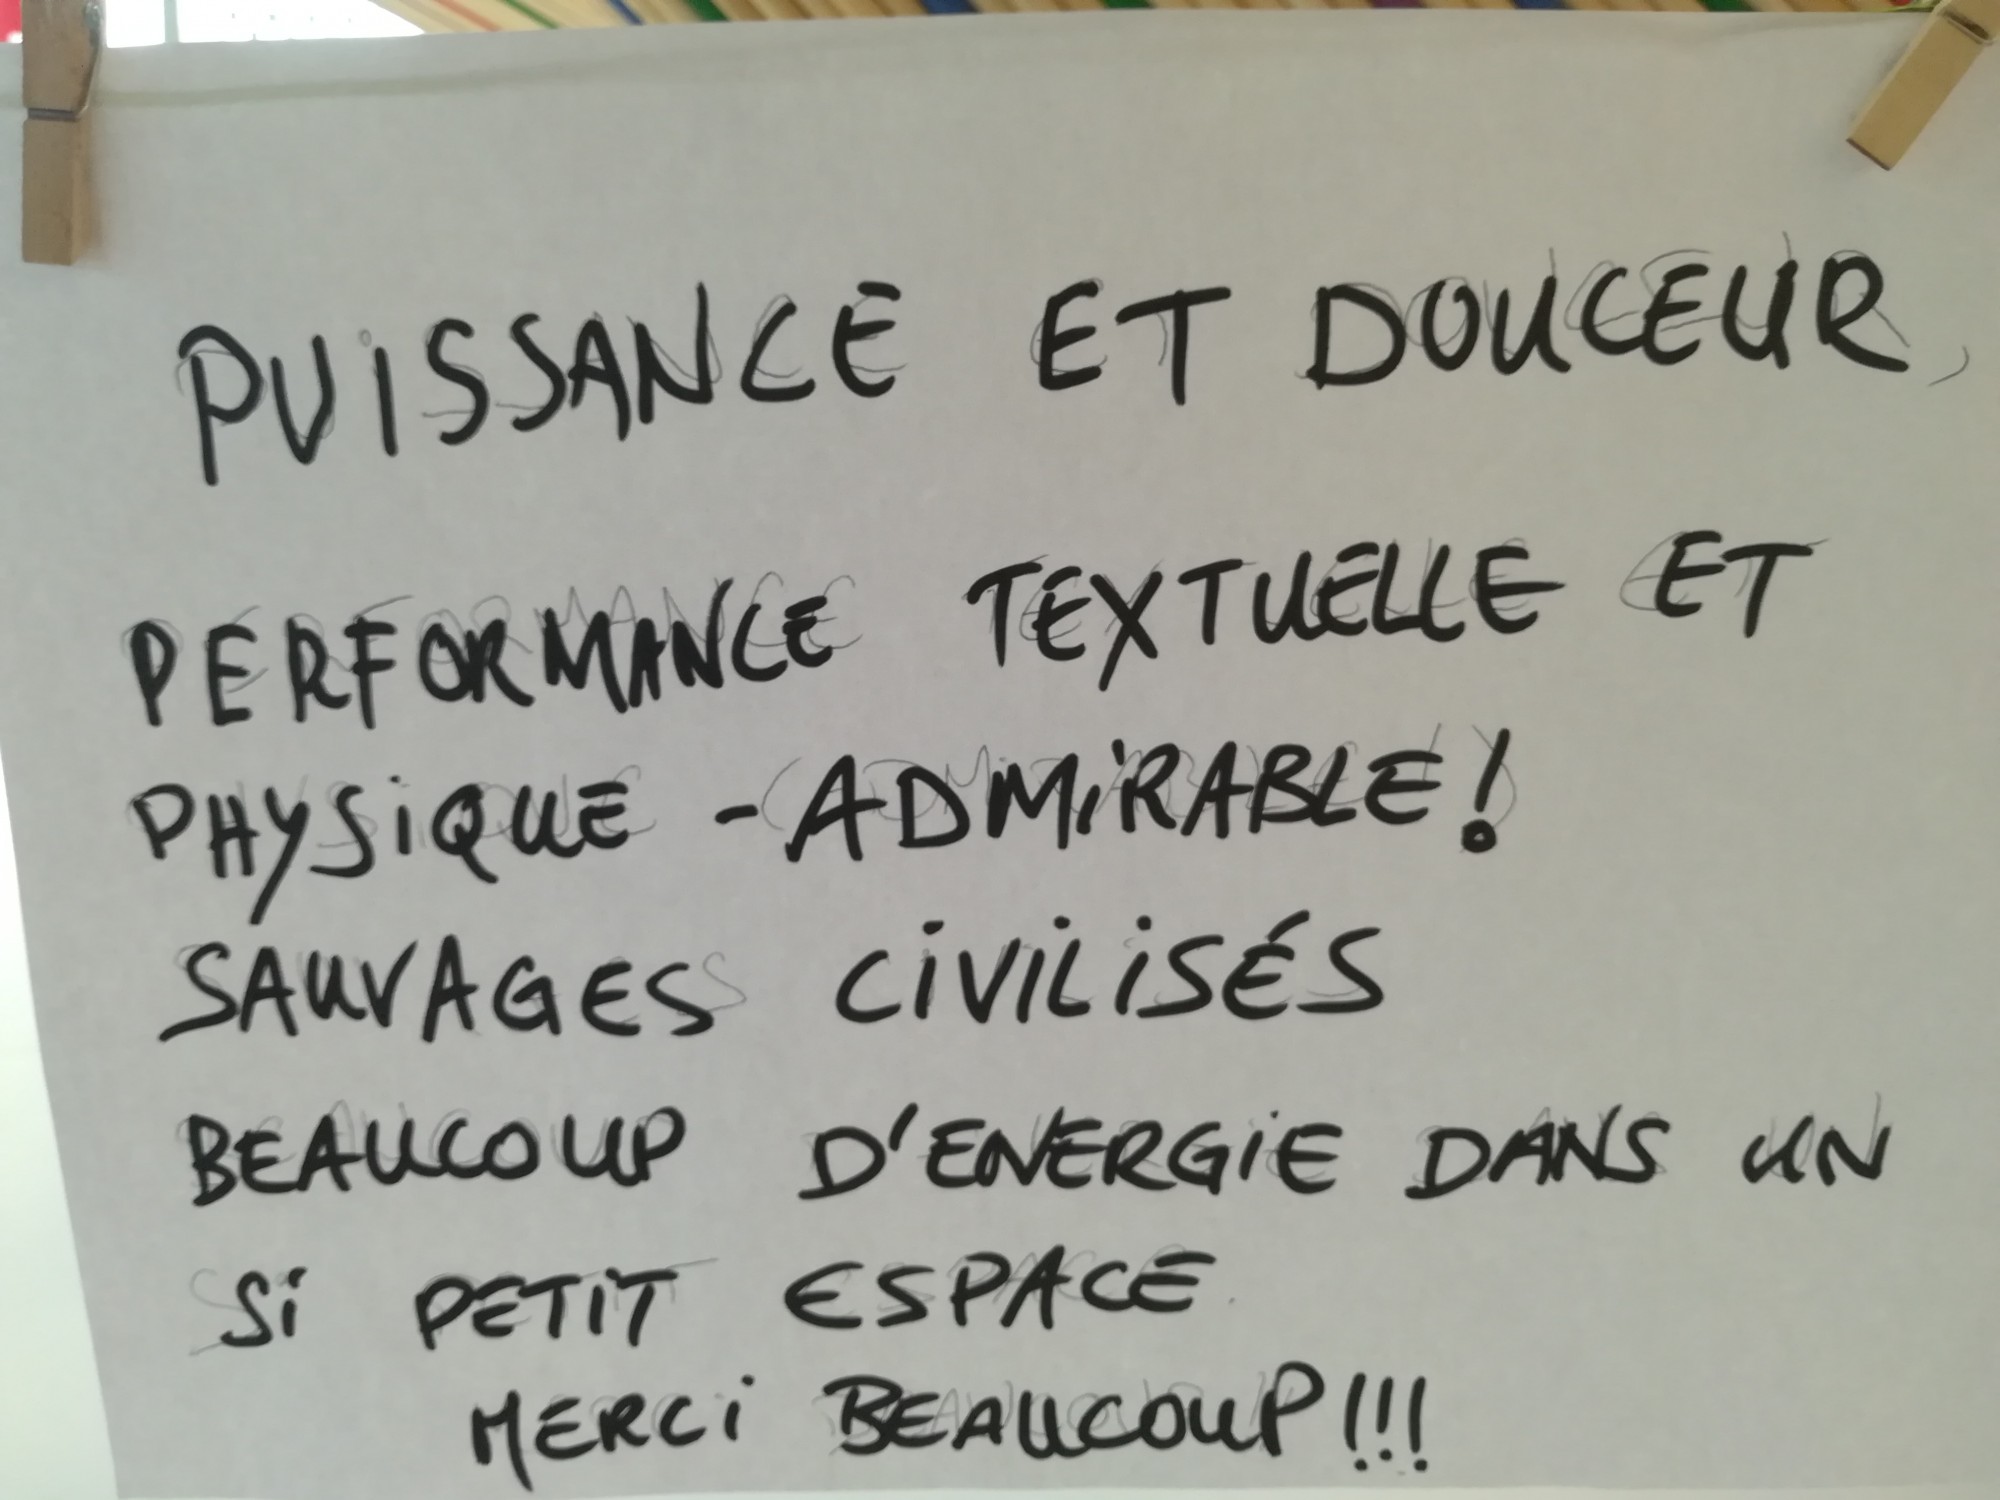 PUISSANCE ET DOUCEUR,
PERFORMANCE TEXTUELLE ET
PHYSIQUE - ADMIRABLE !
SAUVAGES CIVILISÉS
BEAUCOUP D'ENERGIE DANS UN
SI PETIT ESPACE
MERCI BEAUCOUP !!!